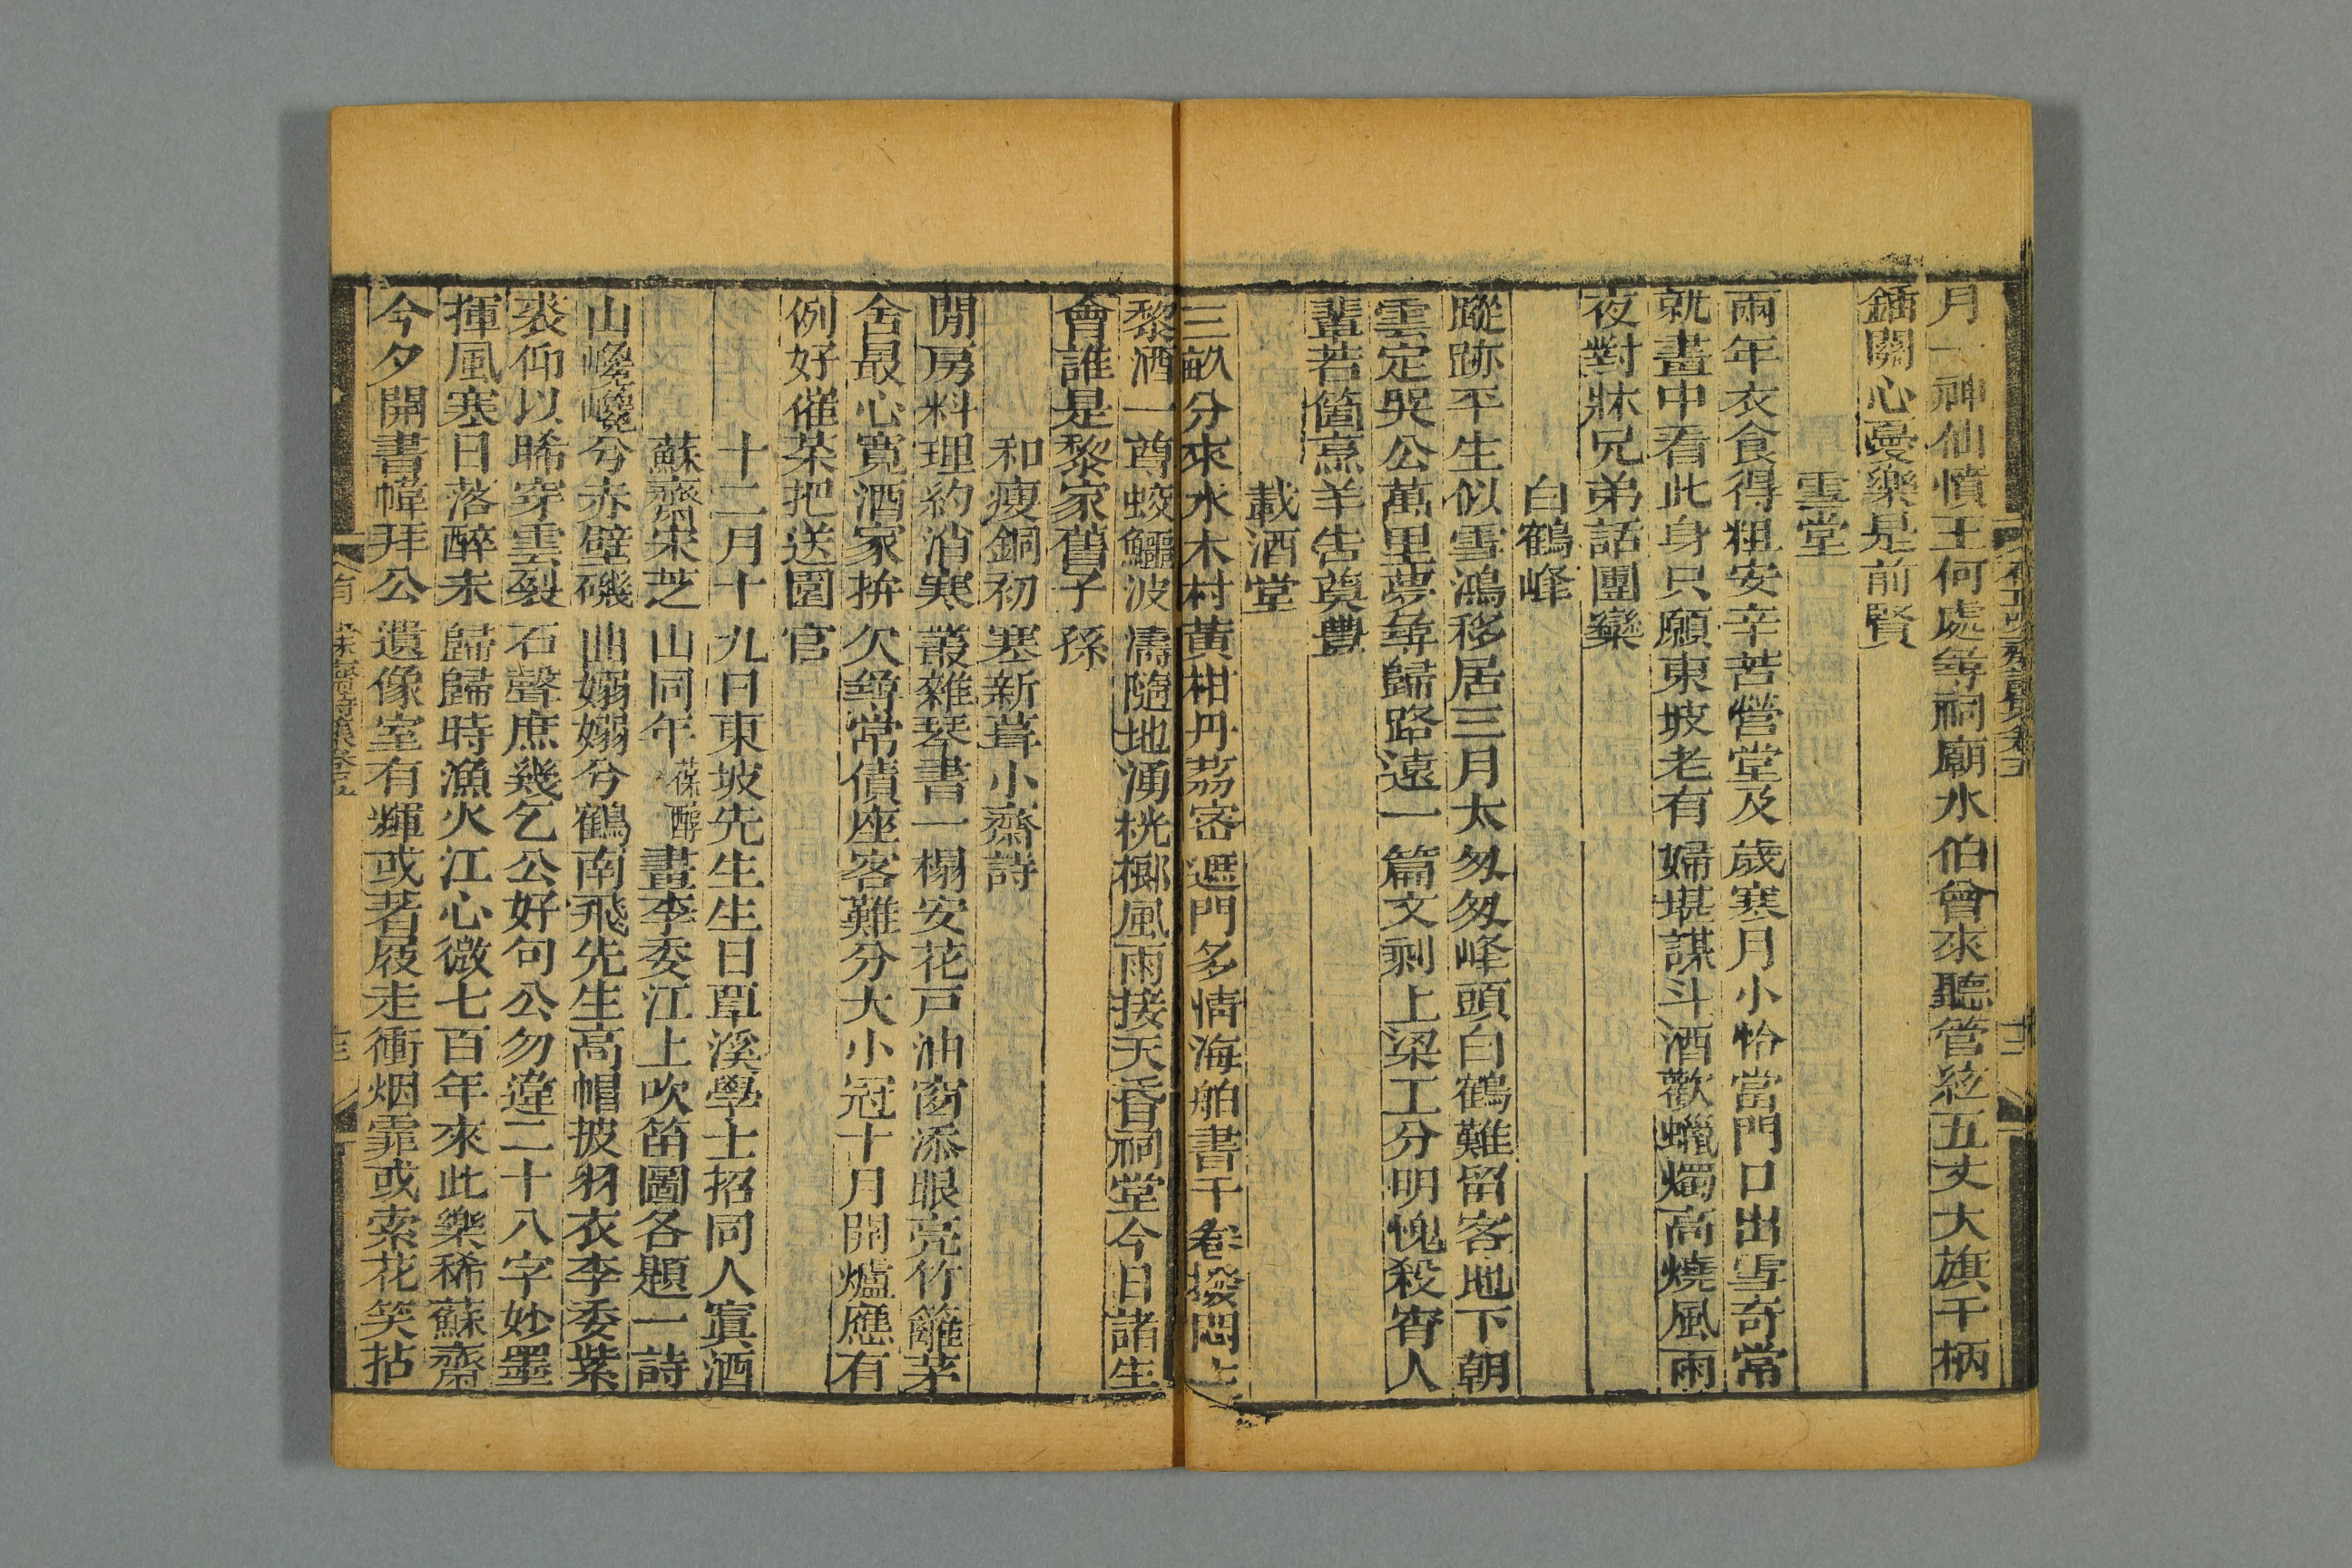 月一神仙憤王何處尋祠廟水伯曾來聽管絃五丈大旗干柄
鍤關心憂樂是前賢
雪堂
兩年衣食得粗安辛苦營堂及歲寒月小恰當門口出雪奇常
就畫中看此身只願東坡老有婦堪謀斗酒歡蠟燭高燒風雨
夜對牀兄弟話團欒
白鶴峰
蹤跡平生似雪鴻移居三月太匆匆峰頭白鶴難留客地下朝
雲定哭公萬里夢尋歸路遠一篇文剩上梁工分明愧殺宥人
輩若箇烹羊告奠豐
載酒堂
三畝分來水木村黃柑丹荔密遮門多情海舶書千卷撥悶
黎酒一尊蛟鱷波濤隨地湧桄榔風雨接天昏祠堂今日諸生
會誰是黎家舊子孫
和瘦銅初寒新葺小齋詩
閒房料理約消寒叢雜琴書一榻安花戸油窗添眼亮竹籬茅
舍最心寛酒家拚欠尋常債座客難分大小冠十月開爐應有
例好催茶把送園官
十二月十九日東坡先生生日覃溪學士招同人寘酒
蘇齋宋芝山同年葆醇畫李委江上吹笛圖各題一詩
山巉巉兮赤壁磯曲嫋嫋兮鶴南飛先生高帽披羽衣李委紫
裘仰以睎穿雲裂石聲庶幾乞公好句公勿違二十八字妙墨
揮風寒日落醉未歸歸時漁火江心微七百年來此樂稀蘇齋
今夕開書幃拜公遺像室有輝或著屐走衝烟霏或索花笑拈